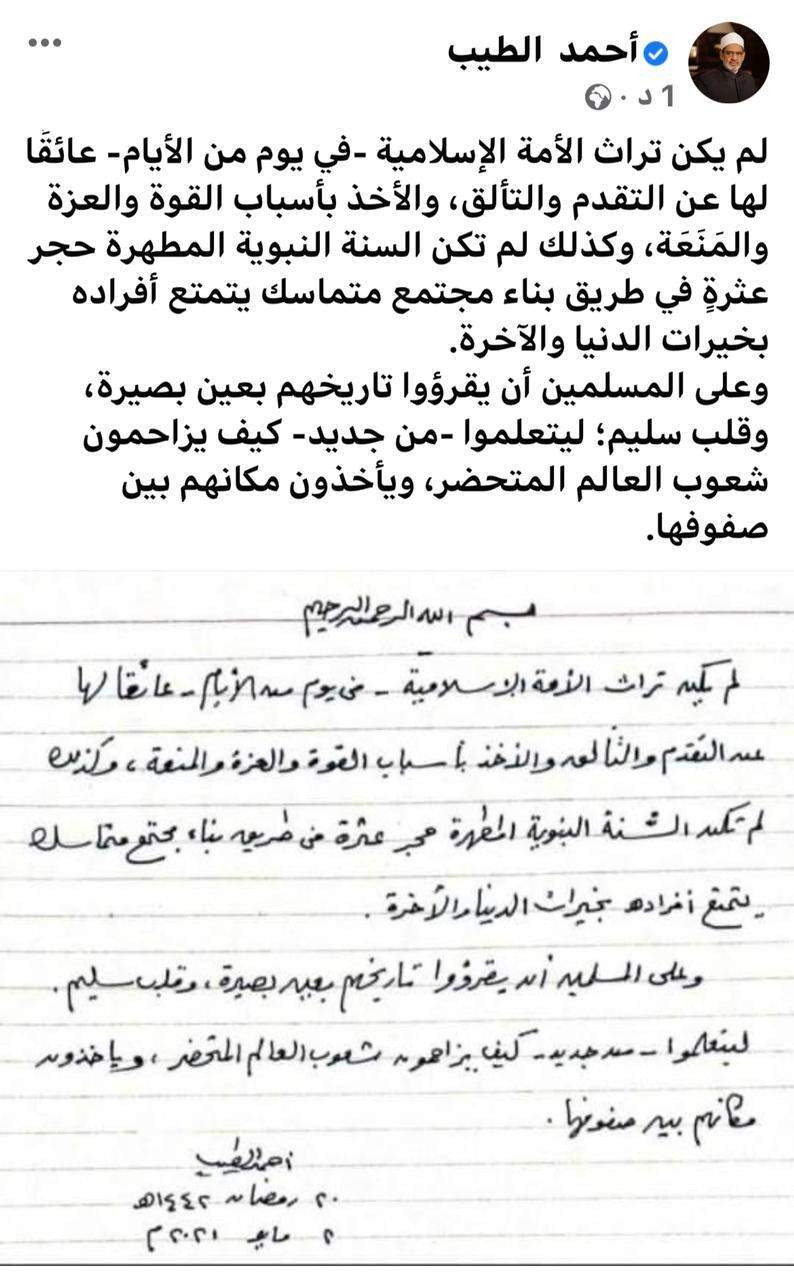 أحمد الطيب
1 د ·
لم يكن تراث الأمة الإسلامية -في يوم من الأيام- عائقًا
لها عن التقدم والتألق، والأخذ بأسباب القوة والعزة
والمَنَعَة، وكذلك لم تكن السنة النبوية المطهرة حجر
عثرةٍ في طريق بناء مجتمع متماسك يتمتع أفراده
بخيرات الدنيا والآخرة.
وعلى المسلمين أن يقرؤوا تاريخهم بعين بصيرة،
وقلب سليم؛ ليتعلموا -من جديد- كيف يزاحمون
شعوب العالم المتحضر، ويأخذون مكانهم بين
صفوفها.
بسم الله الرحمن الرحيم
لم يكن تراث الأمة الإسلامية - في يوم من الأيام - عائقًا لها
عن التقدم والتألق والأخذ بأسباب القوة والعزة والمنعة، وكذلك
لم تكن السُّنة النبوية المطهرة حجر عثرة في طريق بناء مجتمع متماسك
يتمتع أفراده بخيرات الدنيا والآخرة.
وعلى المسلمين أن يقرؤوا تاريخهم بعين بصيرة، وقلب سليم.
ليتعلموا - من جديد - كيف يزاحمون شعوب العالم المتحضر، ويأخذون
مكانهم بين صفوفها.
أحمد الطيب
٢٠ رمضان ١٤٤٢هـ
٢ مايو ٢٠٢١م